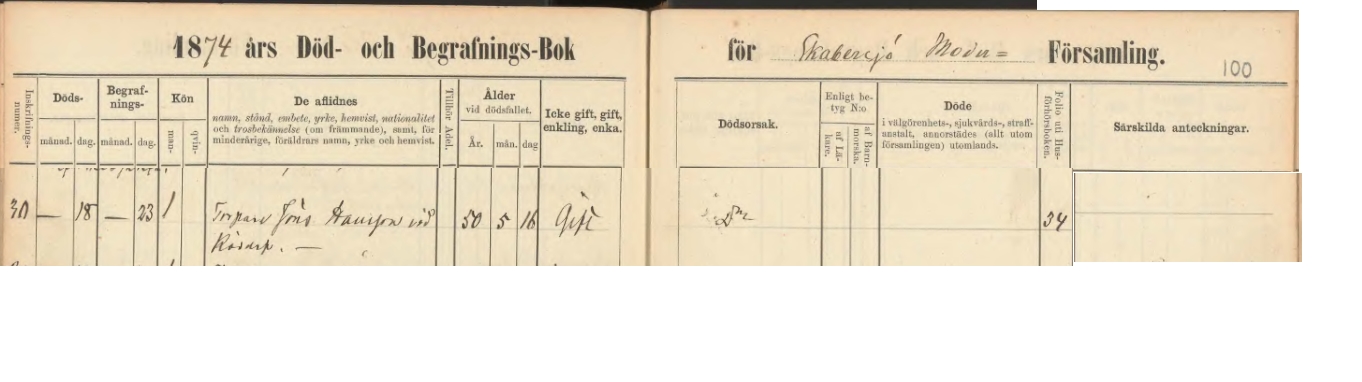 1874 års Död- och Begrafnings-Bok
för Skabersjö Församling.
100
Inskrifnings-numer.
Döds-
månad. dag.
Begraf-
nings-
månad. dag.
Kön
man-
qvin-
De aflidnes
namn, stånd, embete, yrke, hemvist, nationalitet
och trosbekännelse (om främmande), samt, för
minderårige, föräldrars namn, yrke och hemvist.
Tillhör Adel.
Ålder
vid dödsfallet.
År. mån. dag
Icke gift, gift,
enkling, enka.
Dödsorsak.
Enligt be-
tyg N:o
af Lä-
kare.
af Barn-
morska.
Döde
i välgörenhets-, sjukvårds-, straff-
anstalt, annorstädes (allt utom
församlingen) utomlands.
Folio uti Hus-
förhörsboken.
Särskilda anteckningar.
30 — 18 — 23 1 Torpare Jöns Hansson vid 50 5 16 Gift 34